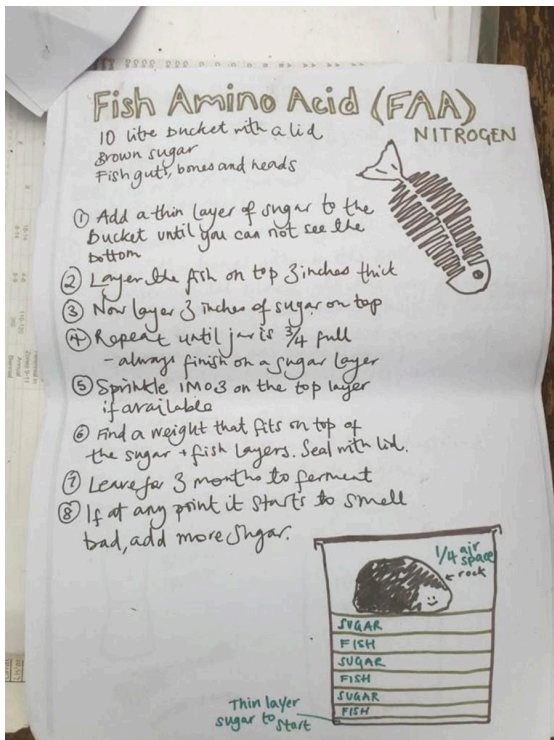 Fish Amino Acid (FAA)
NITROGEN
10 litre bucket with a lid
Brown sugar
Fish guts, bones and heads
① Add a thin layer of sugar to the
bucket until you can not see the
bottom
② Layer the fish on top 3 inches thick
③ Now layer 3 inches of sugar on top
④ Repeat until jar is 3/4 full
- always finish on a sugar layer
⑤ Sprinkle IMO3 on the top layer
if available
⑥ Find a weight that fits on top of
the sugar + fish layers. Seal with lid.
⑦ Leave for 3 months to ferment
⑧ If at any point it starts to smell
bad, add more sugar.
1/4 air
space
rock
SUGAR
FISH
SUGAR
FISH
SUGAR
FISH
Thin layer
sugar to
start